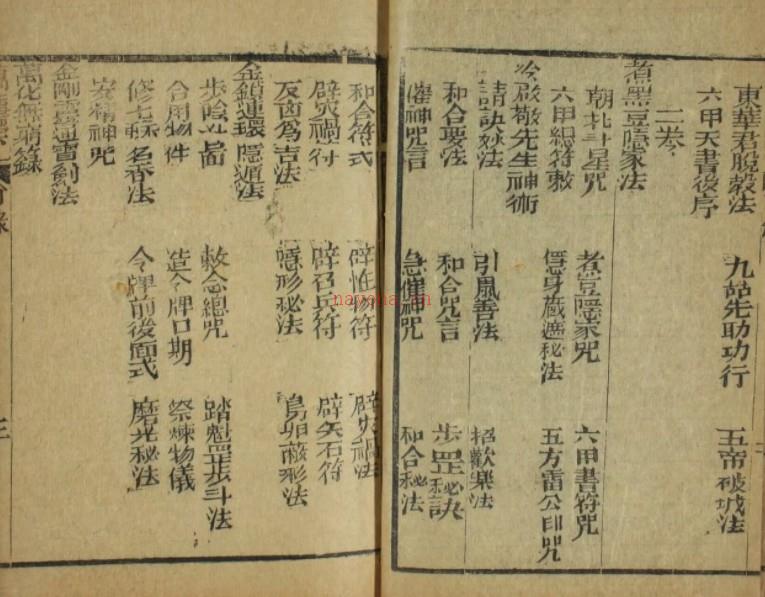 東華君脫殼法 九姑先助功行 五帝破城法
六甲天書後序
二卷
煮黑豆隱家法
朝北斗星咒 煮豈隱家咒 六甲書符咒
六甲總符敕 隱身藏遁秘法 五方雷公印咒
殷敬先生神術
請訣妙法 引風善法 招歡樂法
和合聖法 和合咒言 步罡秘訣
催神咒言 急催神咒 和合秘法
和合符式 辟怪物符
辟災禍符 辟召兵符 辟矢石符
反凶爲吉法 隱形秘法 鳥卵蔽形法
金鎖連環隱遁法
步陰斗啚 敕念總咒 踏魁罡步斗法
合用物件 造令牌口期 祭煉物儀
修合蘇名香法 令牌前後面式 磨光秘法
安精神咒
金剛靈通雷劍法
萬化無窮錄
三
nayona.cn